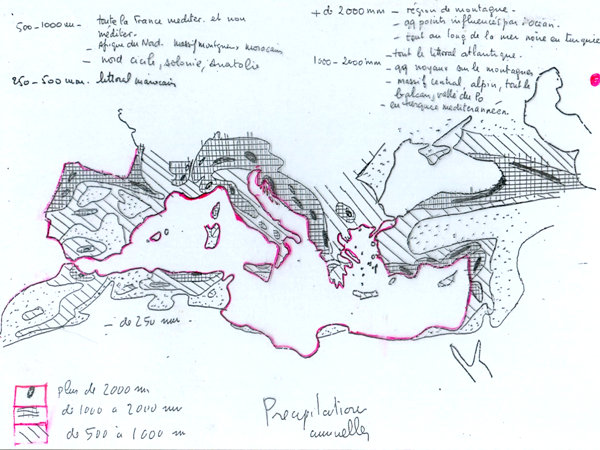 500-1000mm - toute la France méditer. et non
méditer.
- afrique du Nord. Massif montagneux marocain
- nord , anatolie
250-500mm - littoral marocain
+ de 2000mm - région de montagne.
- qq points influencés par l'océan.
- tout au long de la mer noire en turquie
1000-2000mm - tout le littoral atlantique.
- qq noyaux sur le montagnes
- massif central, alpin, tout le
balcan, vallé du Po
en turquie mediterannéen.
- de 250 mm -
plus de 2000 m
de 1000 a 2000 m
de 500 à 1000 m
Precipitations
annuelles